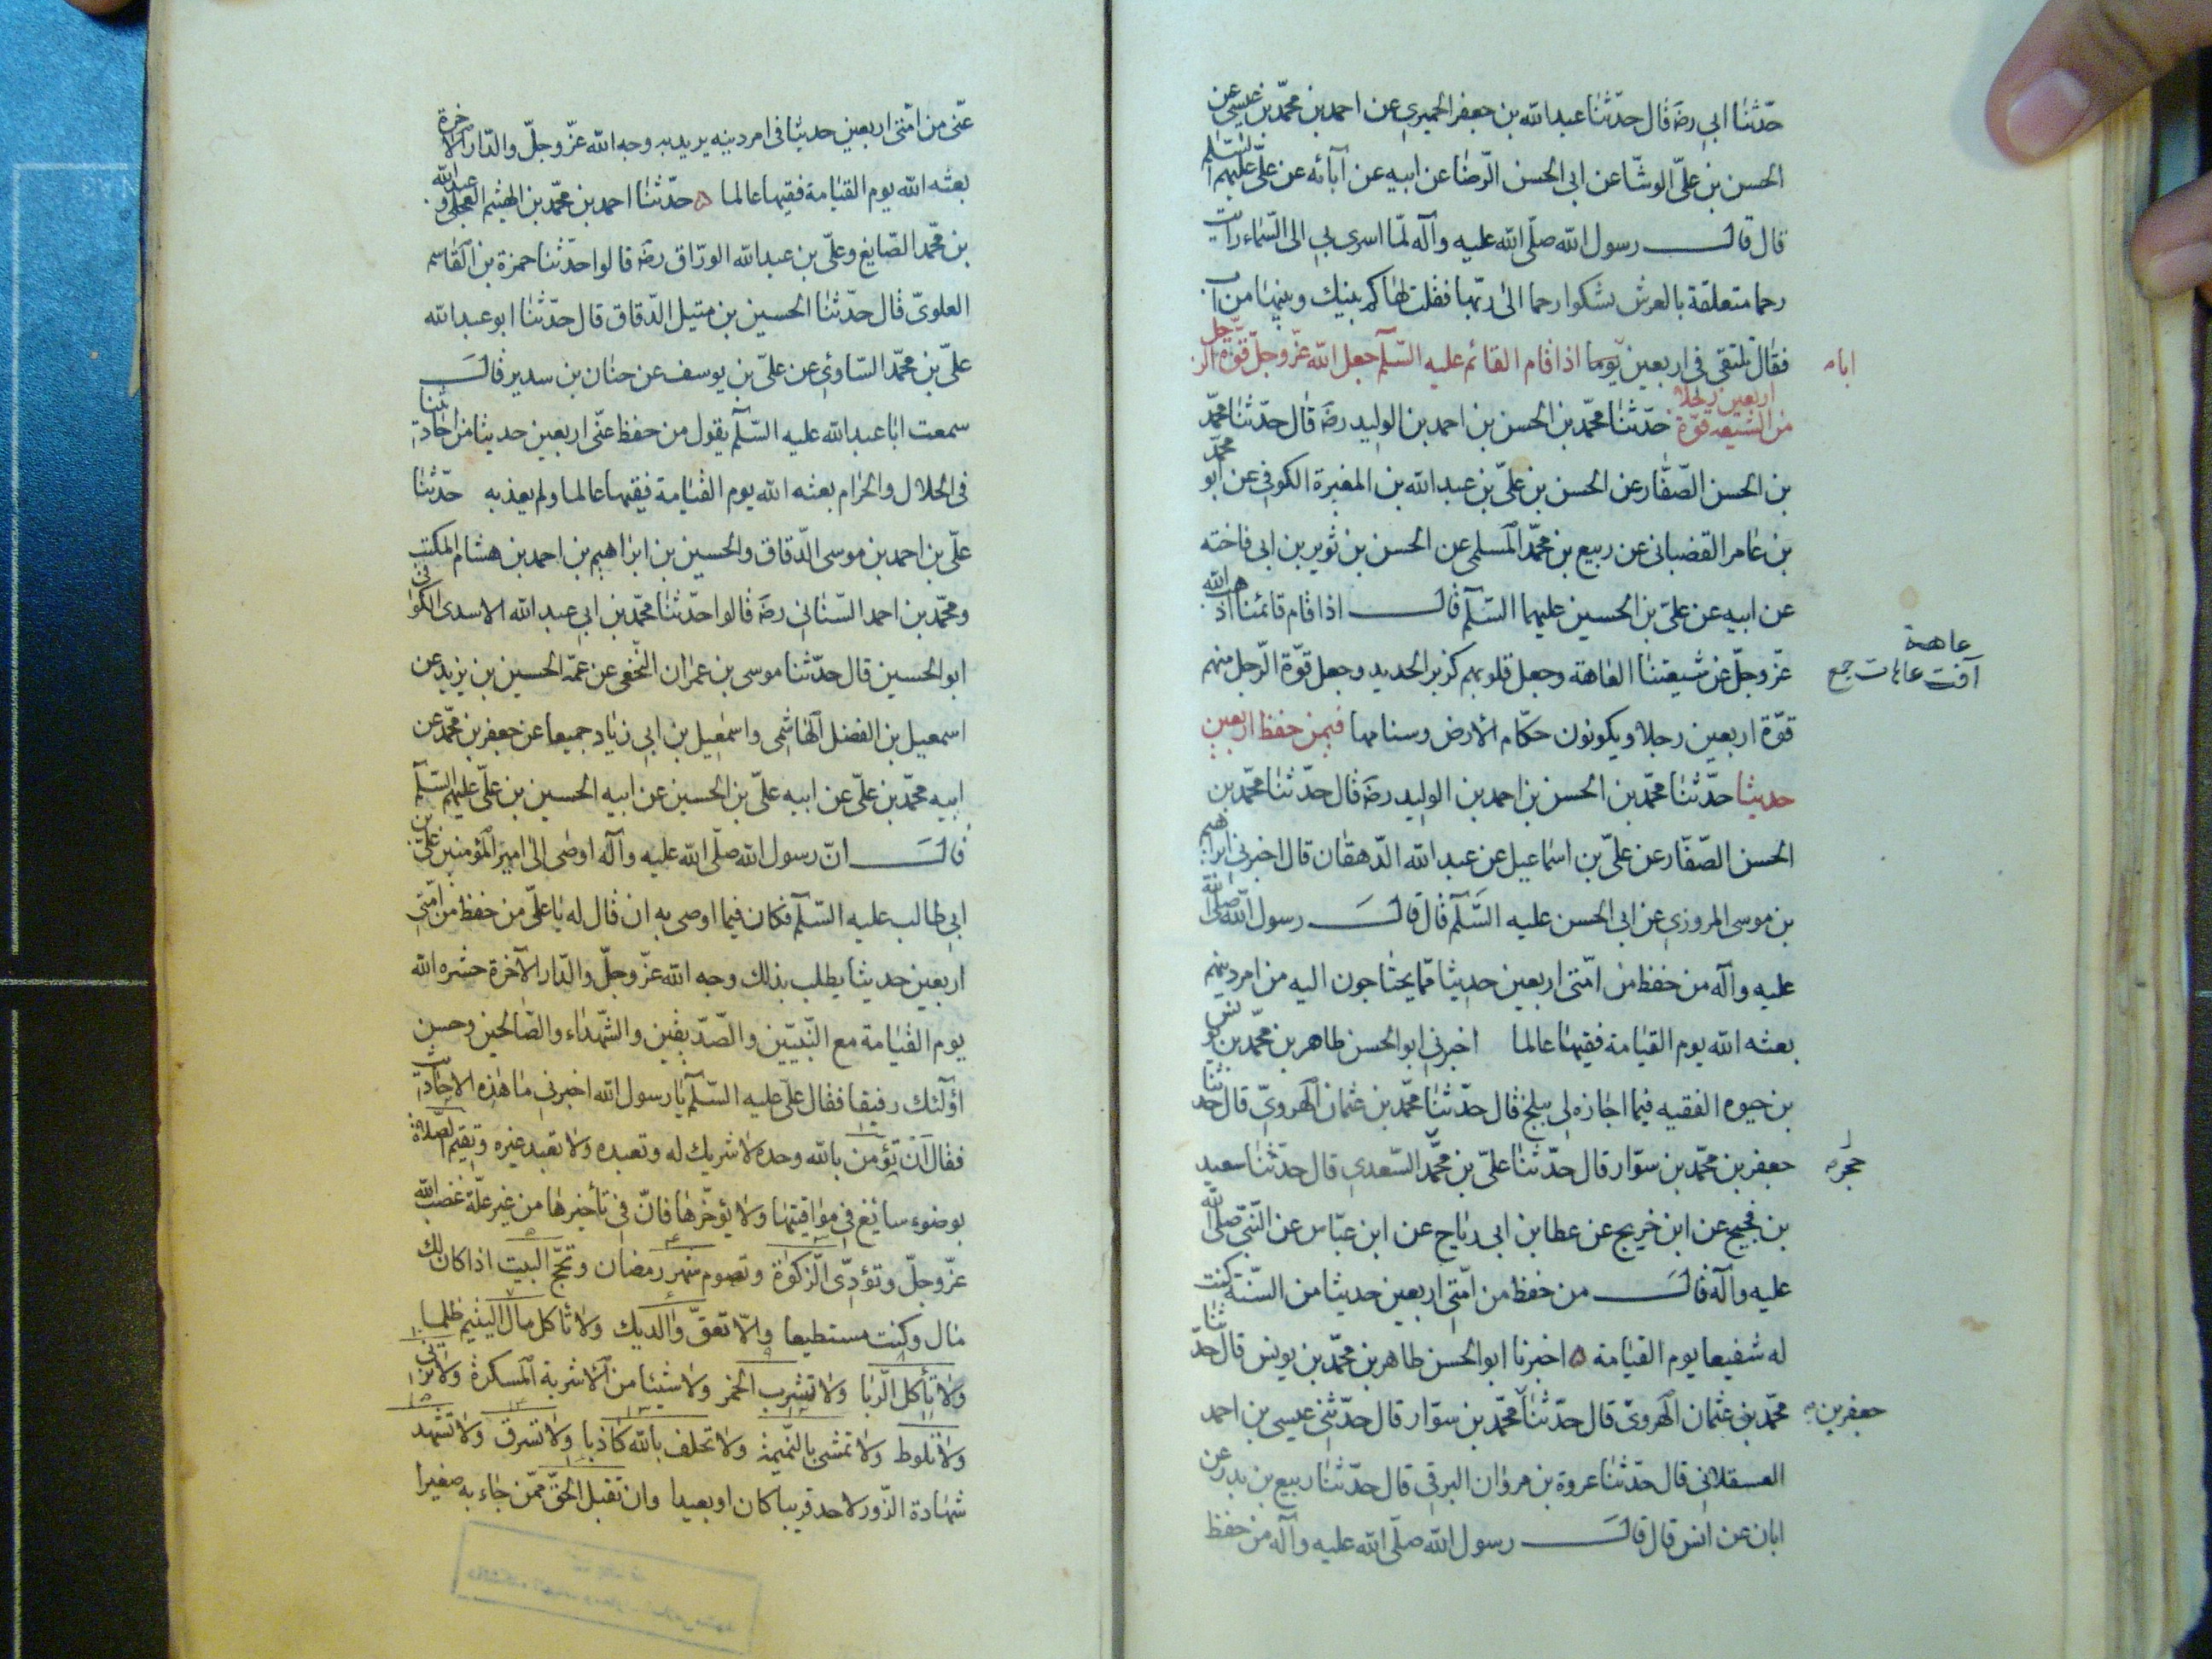 حدّثنا ابي رضَ قال حدّثنا عبد الله بن جعفر الحميري عن احمد بن محمّد بن عيسى عن
الحسن بن علىّ الوشّا عن ابى الحسن الرّضا عن ابيه عن آبائه عن علىّ عليهم السّلم
قال قال رسول الله صلّى الله عليه وآله لمّا اسرى بي الى السّماء رايت
رحما متعلقة بالعرش يشكوا رحما الى ربّها فقلت لها كم بينك وبينها من اب
فقال نلتقى فى اربعين يوما اذا قام القائم عليه السّلم جعل الله عزّ وجلّ قوّة الرّجل
اباه
من الشيعه قوّة اربعين رجلا حدّثنا محمّد بن الحسن بن احمد بن الوليد رضَ قال حدّثنا محمّد
بن الحسن الصّفّار عن الحسن بن علىّ بن عبد الله بن المغيرة الكوفي عن ابو محمّد
بن عامر القضبانى عن ربيع بن محمّد المسلمى عن الحسن بن ثوير بن ابى فاخته
عن ابيه عن علىّ بن الحسين عليهما السّلم قال اذا قام قائمنا اذهب الله
عاهة
عزّ وجلّ عن شيعتنا العاهة وجعل قلوبهم كزبر الحديد وجعل قوّة الرّجل منهم
آفت عاهات جمع
قوّة اربعين رجلا ويكونون حكّام الارض وسنامها فيمن حفظ اربعين
حديثا حدّثنا محمّد بن الحسن بن احمد بن الوليد رضَ قال حدّثنا محمّد بن
الحسن الصّفّار عن علىّ بن اسماعيل عن عبد الله الدّهقان قال اخبرني ابراهيم
بن موسى المروزي عن ابى الحسن عليه السّلم قال قال رسول الله صلّى الله
عليه وآله من حفظ من امّتى اربعين حديثا ممّا يحتاجون اليه من امر دينهم
بعثه الله يوم القيامة فقيها عالما اخبرني ابو الحسن طاهر بن محمّد بن يونس
بن حيوه الفقيه فيما اجازه لي ببلخ قال حدّثنا محمّد بن عثمان الهروىّ قال حدثنا
جعفر بن محمّد بن سوّار قال حدّثنا علىّ بن محمّد السّعدي قال حدّثنا سعيد
حجره
بن نجيح عن ابن خريج عن عطا بن ابى رباح عن ابن عبّاس عن النّبىّ صلّى الله
عليه وآله قال من حفظ من امّتى اربعين حديثا من السّنة كنت
له شفيعا يوم القيامة اخبرنا ابو الحسن طاهر بن محمّد بن يونس قال حدّثنا
محمّد بن عثمان الهروىّ قال حدّثنا محمّد بن سوّار قال حدّثنى عيسى بن احمد
جعفر بن
العسقلاني قال حدّثنا عروة بن مروان البرقي قال حدّثنا ربيع بن بدر عن
ابان عن انس قال قال رسول الله صلّى الله عليه وآله من حفظ
عنّى من امّتى اربعين حديثا فى امر دينه يريد به وجه الله عزّ وجلّ والدّار الآخرة
بعثه الله يوم القيامة فقيها عالما حدّثنا احمد بن محمّد بن الهيثم العجلى وعبد الله
بن محّمد الصّايغ وعلىّ بن عبد الله الورّاق رضَ قالوا حدّثنا حمزة بن القاسم
العلوىّ قال حدّثنا الحسين بن متيل الدّقاق قال حدّثنا ابو عبد الله
علىّ بن محمّد السّاوئى عن علىّ بن يوسف عن حنان بن سدير قال
سمعت ابا عبد الله عليه السّلم يقول من حفظ عنّى اربعين حديثا من احاديثنا
فى الحلال والحرام بعثه الله يوم القيامة فقيها عالما ولم يعذبه حدّثنا
علىّ بن احمد بن موسى الدّقاق والحسين بن ابراهيم بن احمد بن هشام المكتب
ومحمّد بن احمد السّنانى رضَ قالوا حدّثنا محمّد بن ابي عبد الله الاسدى الكوفى
ابو الحسين قال حدّثنا موسى بن عمران النخّعى عن عمّه الحسين بن يزيد عن
اسمعيل بن الفضل الهاشمى واسمعيل بن ابى زياد جميعا عن جعفر بن محمّد عن
ابيه محمّد بن علىّ عن ابيه علىّ بن الحسين عن ابيه الحسين بن علىّ عليهم السّلم
قال انّ رسول الله صلّى الله عليه وآله اوصى الى امير المؤمنين علىّ بن
ابى طالب عليه السّلم فكان فيما اوصى به ان قال له يا علىّ من حفظ من امّتى
اربعين حديثا يطلب بذلك وجه الله عزّ وجلّ والدّار الآخرة حشره الله
يوم القيامة مع النّبيّين والصّدّيقين والشّهداء والصّالحين وحسن
اولئك رفيقا فقال علىّ عليه السّلم يا رسول الله اخبرني ما هذه الاحاديث
فقال ان تؤمن بالله وحده لا شريك له وتعبده ولا تعبد غيره وتقيم الصّلاة
بوضوء سابغ فى مواقيتها ولا يؤخّرها فانّ فى تأخيرها من غير علّة غضب الله
عزّ وجلّ وتؤدّى الزكوة وتصوم شهر رمضان وتحجّ البيت اذا كان لك
مال وكنت مستطيعا والّا تعقّ والديك ولا تاكل مال اليتيم ظلما
ولا تأكل الرّبا ولا تشرب الخمر ولا شيئا من الاشربة المسكرة ولا تزنى
ولا تلوط ولا تمشى بالنّميمة ولا تحلف بالله كاذبا ولا تسرق ولا تشهد
شهادة الزّور لاحد قريبا كان او بعيدا وان تقبل الحقّ ممّن جاء به صغيرا